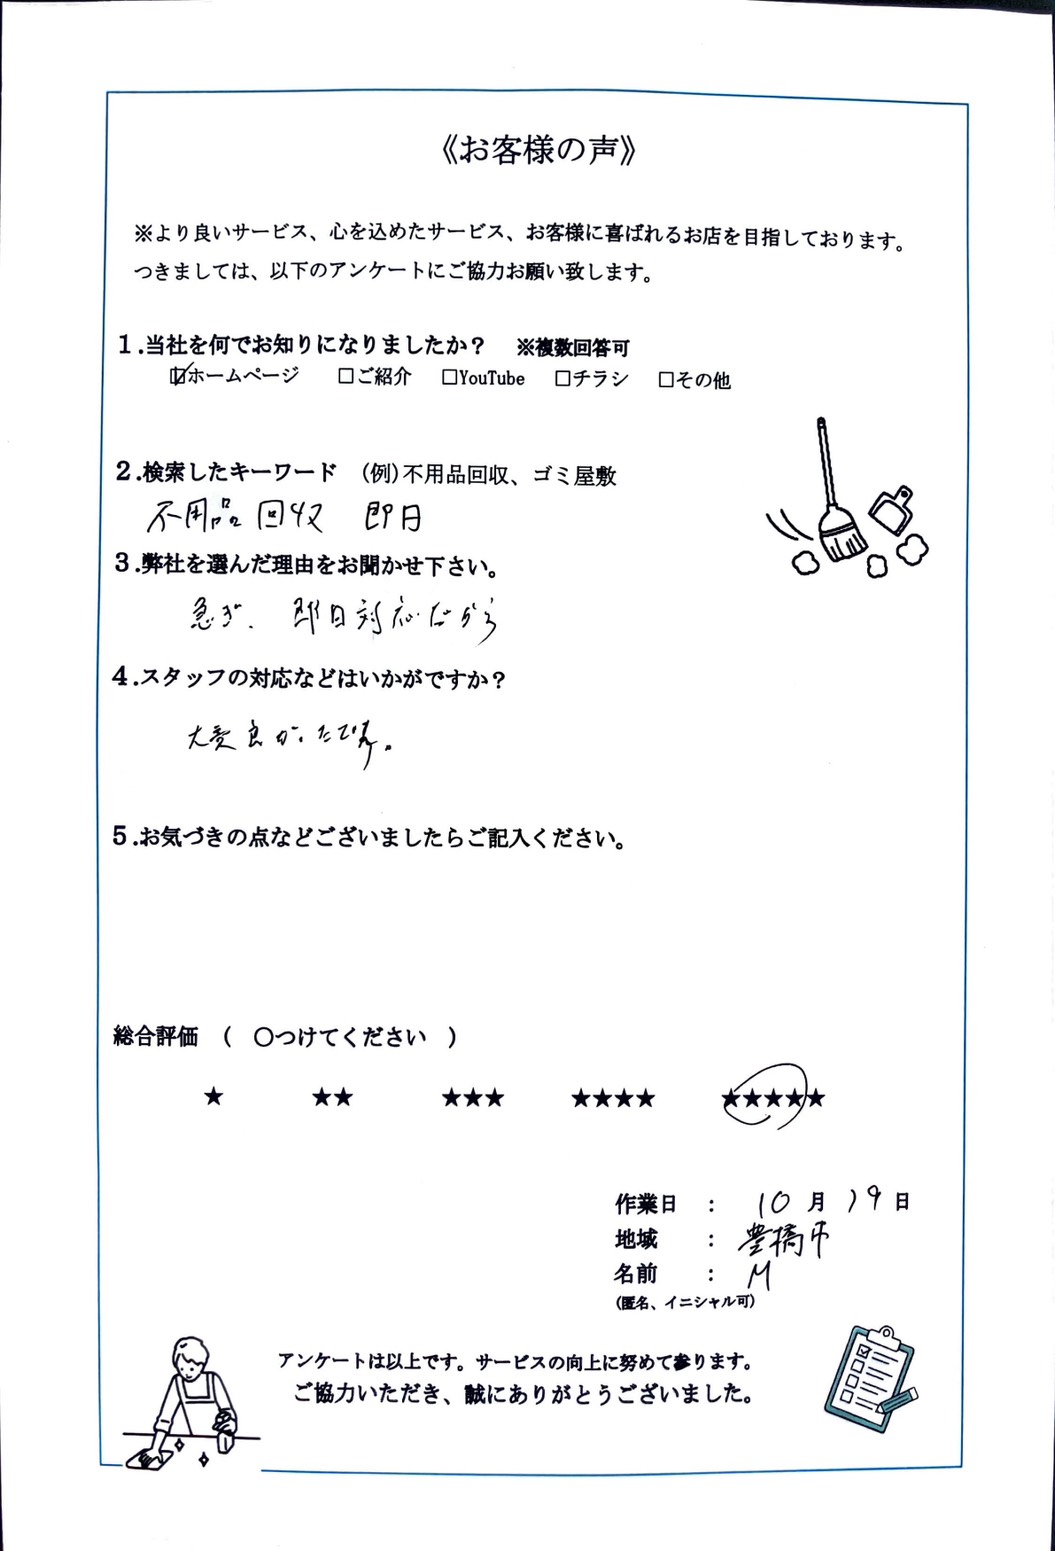 《お客様の声》
※より良いサービス、心を込めたサービス、お客様に喜ばれるお店を目指しております。
つきましては、以下のアンケートにご協力お願い致します。
1.当社を何でお知りになりましたか？ ※複数回答可
☑ホームページ □ご紹介 □YouTube □チラシ □その他
2.検索したキーワード (例)不用品回収、ゴミ屋敷
不用品回収 即日
3.弊社を選んだ理由をお聞かせ下さい。
急ぎ、即日対応だから
4.スタッフの対応などはいかがですか？
大変良かったです。
5.お気づきの点などございましたらご記入ください。
総合評価 ( ○つけてください )
★ ★★ ★★★ ★★★★ ★★★★★
作業日 : 10月19日
地域 : 豊橋市
名前 : M
(匿名、イニシャル可)
アンケートは以上です。サービスの向上に努めて参ります。
ご協力いただき、誠にありがとうございました。